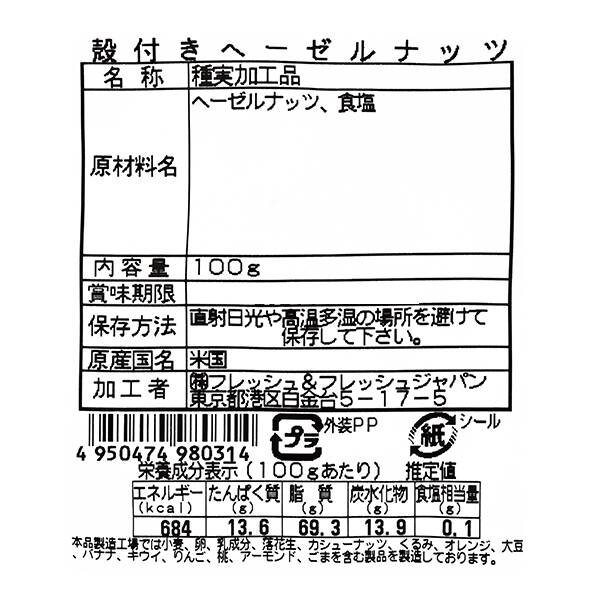 殻付きヘーゼルナッツ
名称 種実加工品
原材料名 ヘーゼルナッツ、食塩
内容量 100g
賞味期限
保存方法 直射日光や高温多湿の場所を避けて
保存して下さい。
原産国名 米国
加工者 ㈱フレッシュ&フレッシュジャパン
東京都港区白金台5-17-5
4 950474 980314
プラ 外装PP
紙 シール
栄養成分表示(100gあたり) 推定値
エネルギー(kcal) たんぱく質(g) 脂質(g) 炭水化物(g) 食塩相当量(g)
684 13.6 69.3 13.9 0.1
本品製造工場では小麦、卵、乳成分、落花生、カシューナッツ、くるみ、オレンジ、大豆
、バナナ、キウイ、りんご、桃、アーモンド、ごまを含む製品を製造しています。